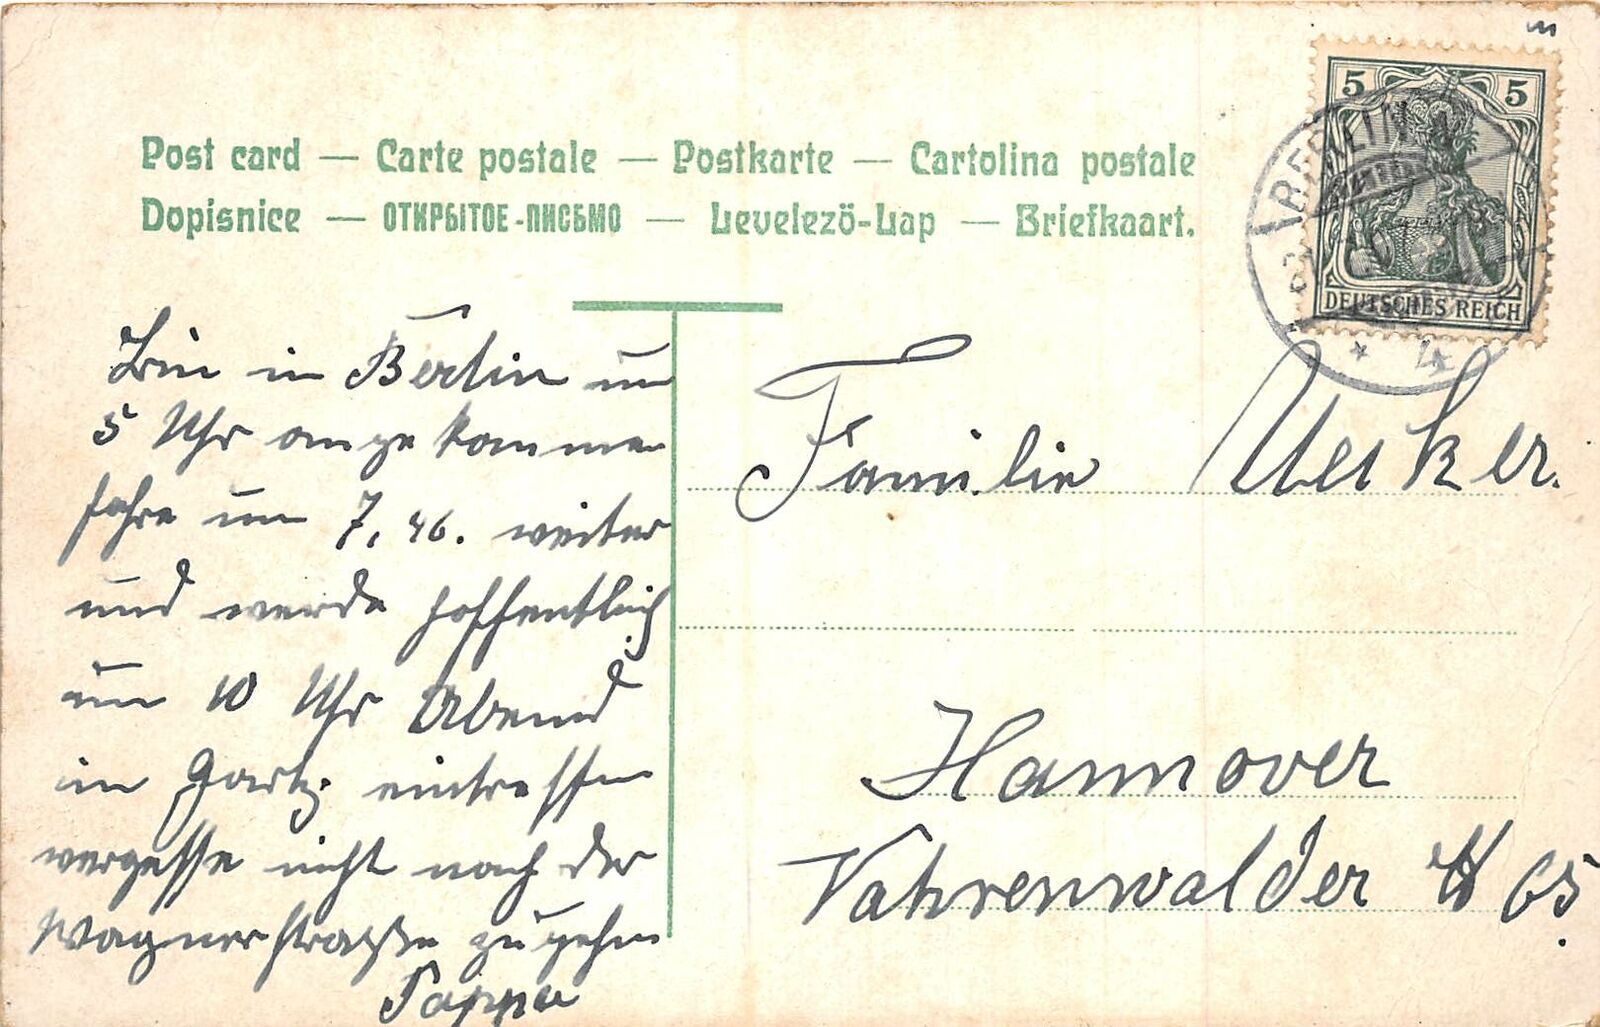 Post card — Carte postale — Postkarte — Cartolina postale
Dopisnice — ОТКРЫТОЕ-ПИСЬМО — Levelezö-Lap — Briefkaart.
5 5
DEUTSCHES REICH
BERLIN
Bin in Berlin um
5 Uhr angekommen
fahre um 7,46. weiter
und werde hoffentlich
um 10 Uhr Abend
in Gartz eintreffen
vergesse nicht nach der
Wagnerstraße zu gehen
Pappa
Familie Uecker.
Hannover
Vahrenwalder 65.